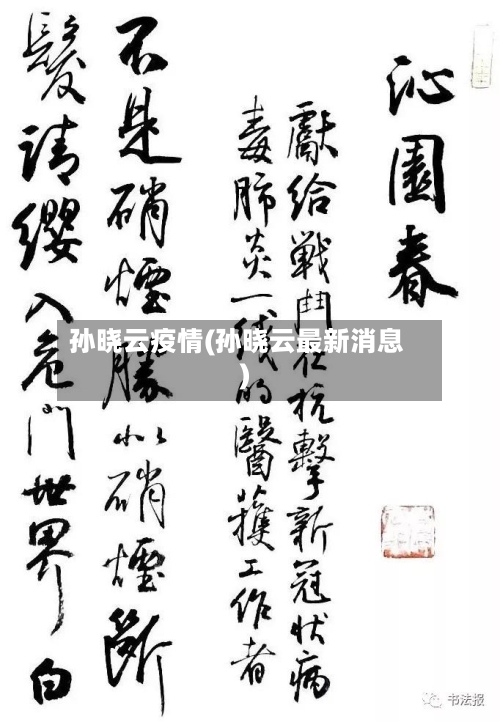 沁園春
獻給戰鬥在抗擊新冠狀病
毒肺炎一线的醫護工作者
不是硝煙勝似硝煙断
髮請纓入危門世界白
孙晓云疫情(孙晓云最新消息
)
书法报